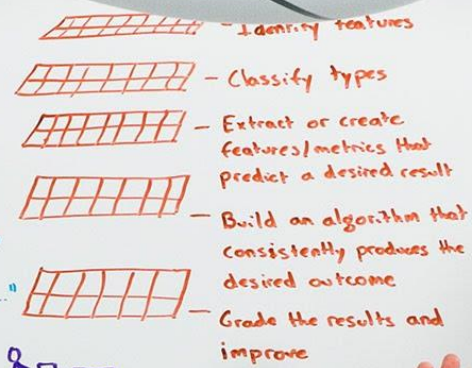 - Identify features
- Classify types
- Extract or create
features/metrics that
predict a desired result
- Build an algorithm that
consistently produces the
desired outcome
- Grade the results and
improve